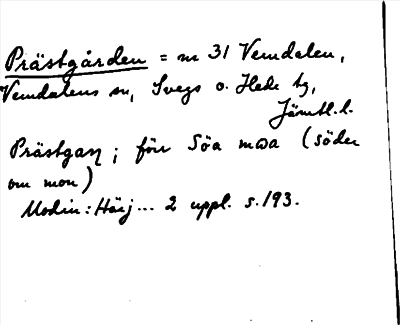 Prästgården = nr 31 Vemdalen,
Vemdalens sn, Svegs o. Hede tg,
Jämtl. l.
Prästgaŋ ; förr Söa mωa (söder
om mon)
Modin: Härj... 2 uppl. s. 193.